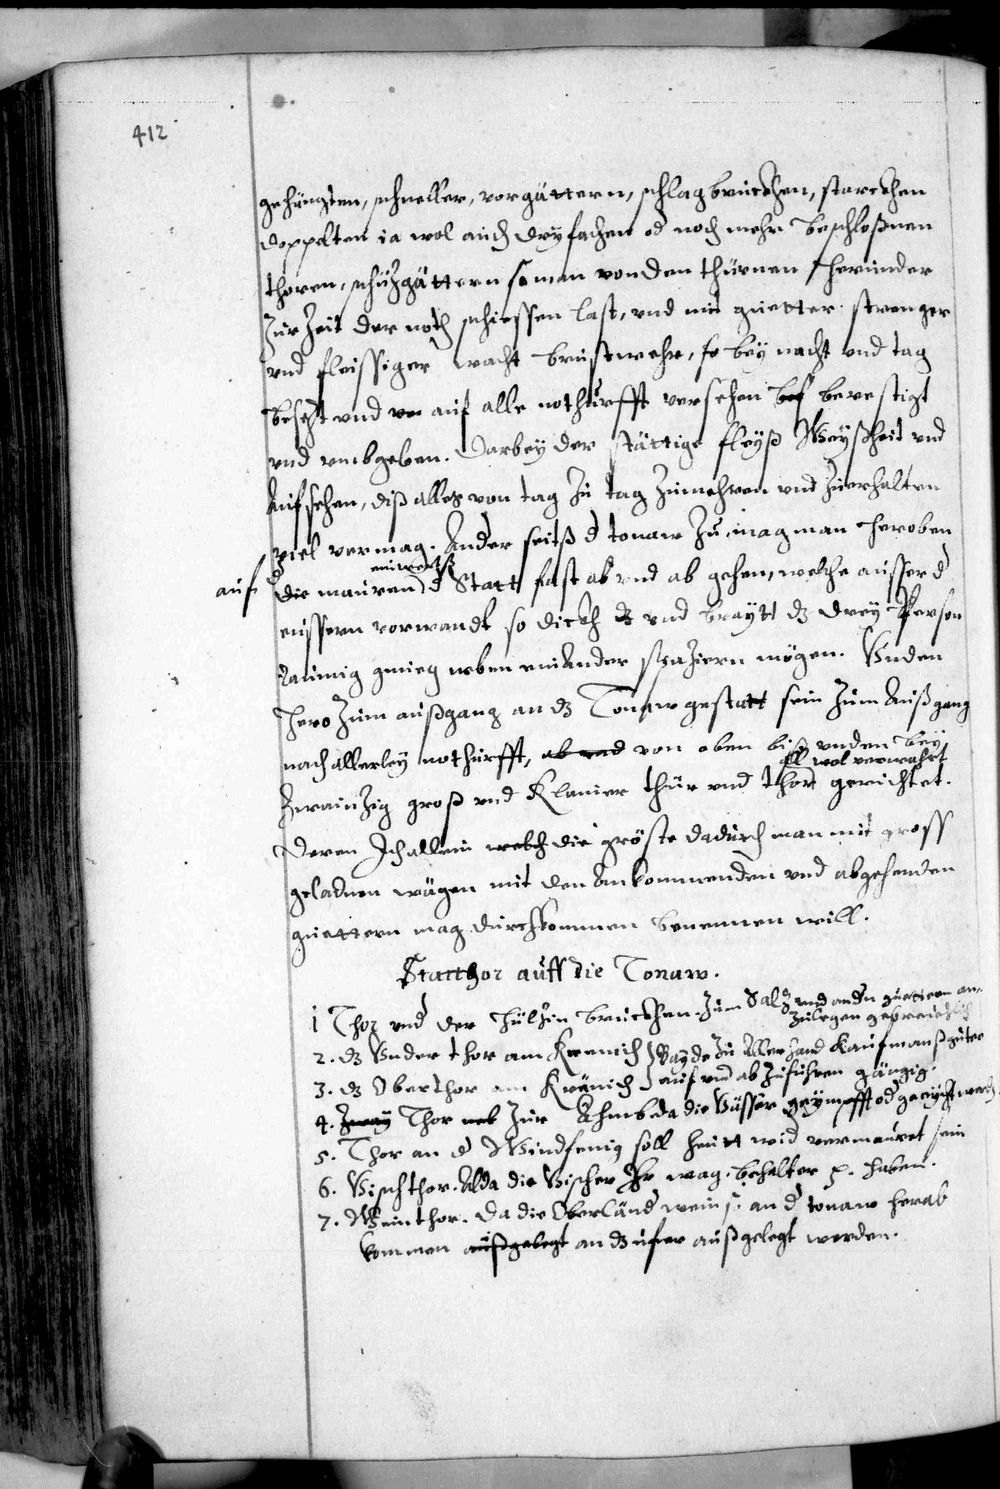 412
gehüngten, schneller, vorgättern, schlagbruckhen, starckhen
doppelten ia wol auch dryfachen od noch mehr beschloßnen
thoren, schuzgättern so man von den thürnen herunder
Zur Zeit der noth schiessen last, vnd mit guetter strenger
vnd fleissiger wacht brustwehr, so bey nacht vnd tag
besezt vnd auf alle nothurfft versehen bevestigt
vnd vmbgeben. Darbey der stättige fleyß Weyßheit vnd
Aufsehen, diß alles von tag Zu tag Zumehren vnd Zuerhalten
viel vermag. Ander seitß d tonaw Zu, mag man heroben
auf die mauren einwerts d Statt fast ab vnd ab gehen, welche ausser d
eussern vorwandt so dickh vnd braytt dz drey Person
raumig gnueg neben einander spaziern mögen. Vnden
hero Zum außgang an dz Tonaw gestatt sein Zum Außgang
nach allerley nothurfft, ab vnd von oben biß vnden bey
all wol verwahrt
Zwainzig groß vnd Klainer thür vnd thor gerichtet.
Deren Ich allein welch die gröste dadurch man mit gross
geladnen wägen mit den Ankommenden vnd abgehenden
guettern mag durchkommen benennen will.
Stattthor auff die Tonaw.
1 Thor vnd der hülzin bruckhen. Zum Salz vnd andn guettern an-
Zulegen gebreuchlich
2. dz Vnder thor am Kränich } Bayde Zu Aller hand Kaufmanßgüter
3. dz Oberthor am Kränich } auf vnd ab Zuführen gängig.
4. Zway Thor Zur Ahmb da die Vässer geympfft od geaycht werden
5. Thor an d Windfenig soll heutt wid vermauret sein
6. Vischthor. Alda die Vischer Ihr wag. behalter p. haben.
7. Weinthor. Da die Oberländ wein p. an d tonaw herab
kommen außgelegt an dz ufer außgelegt werden.